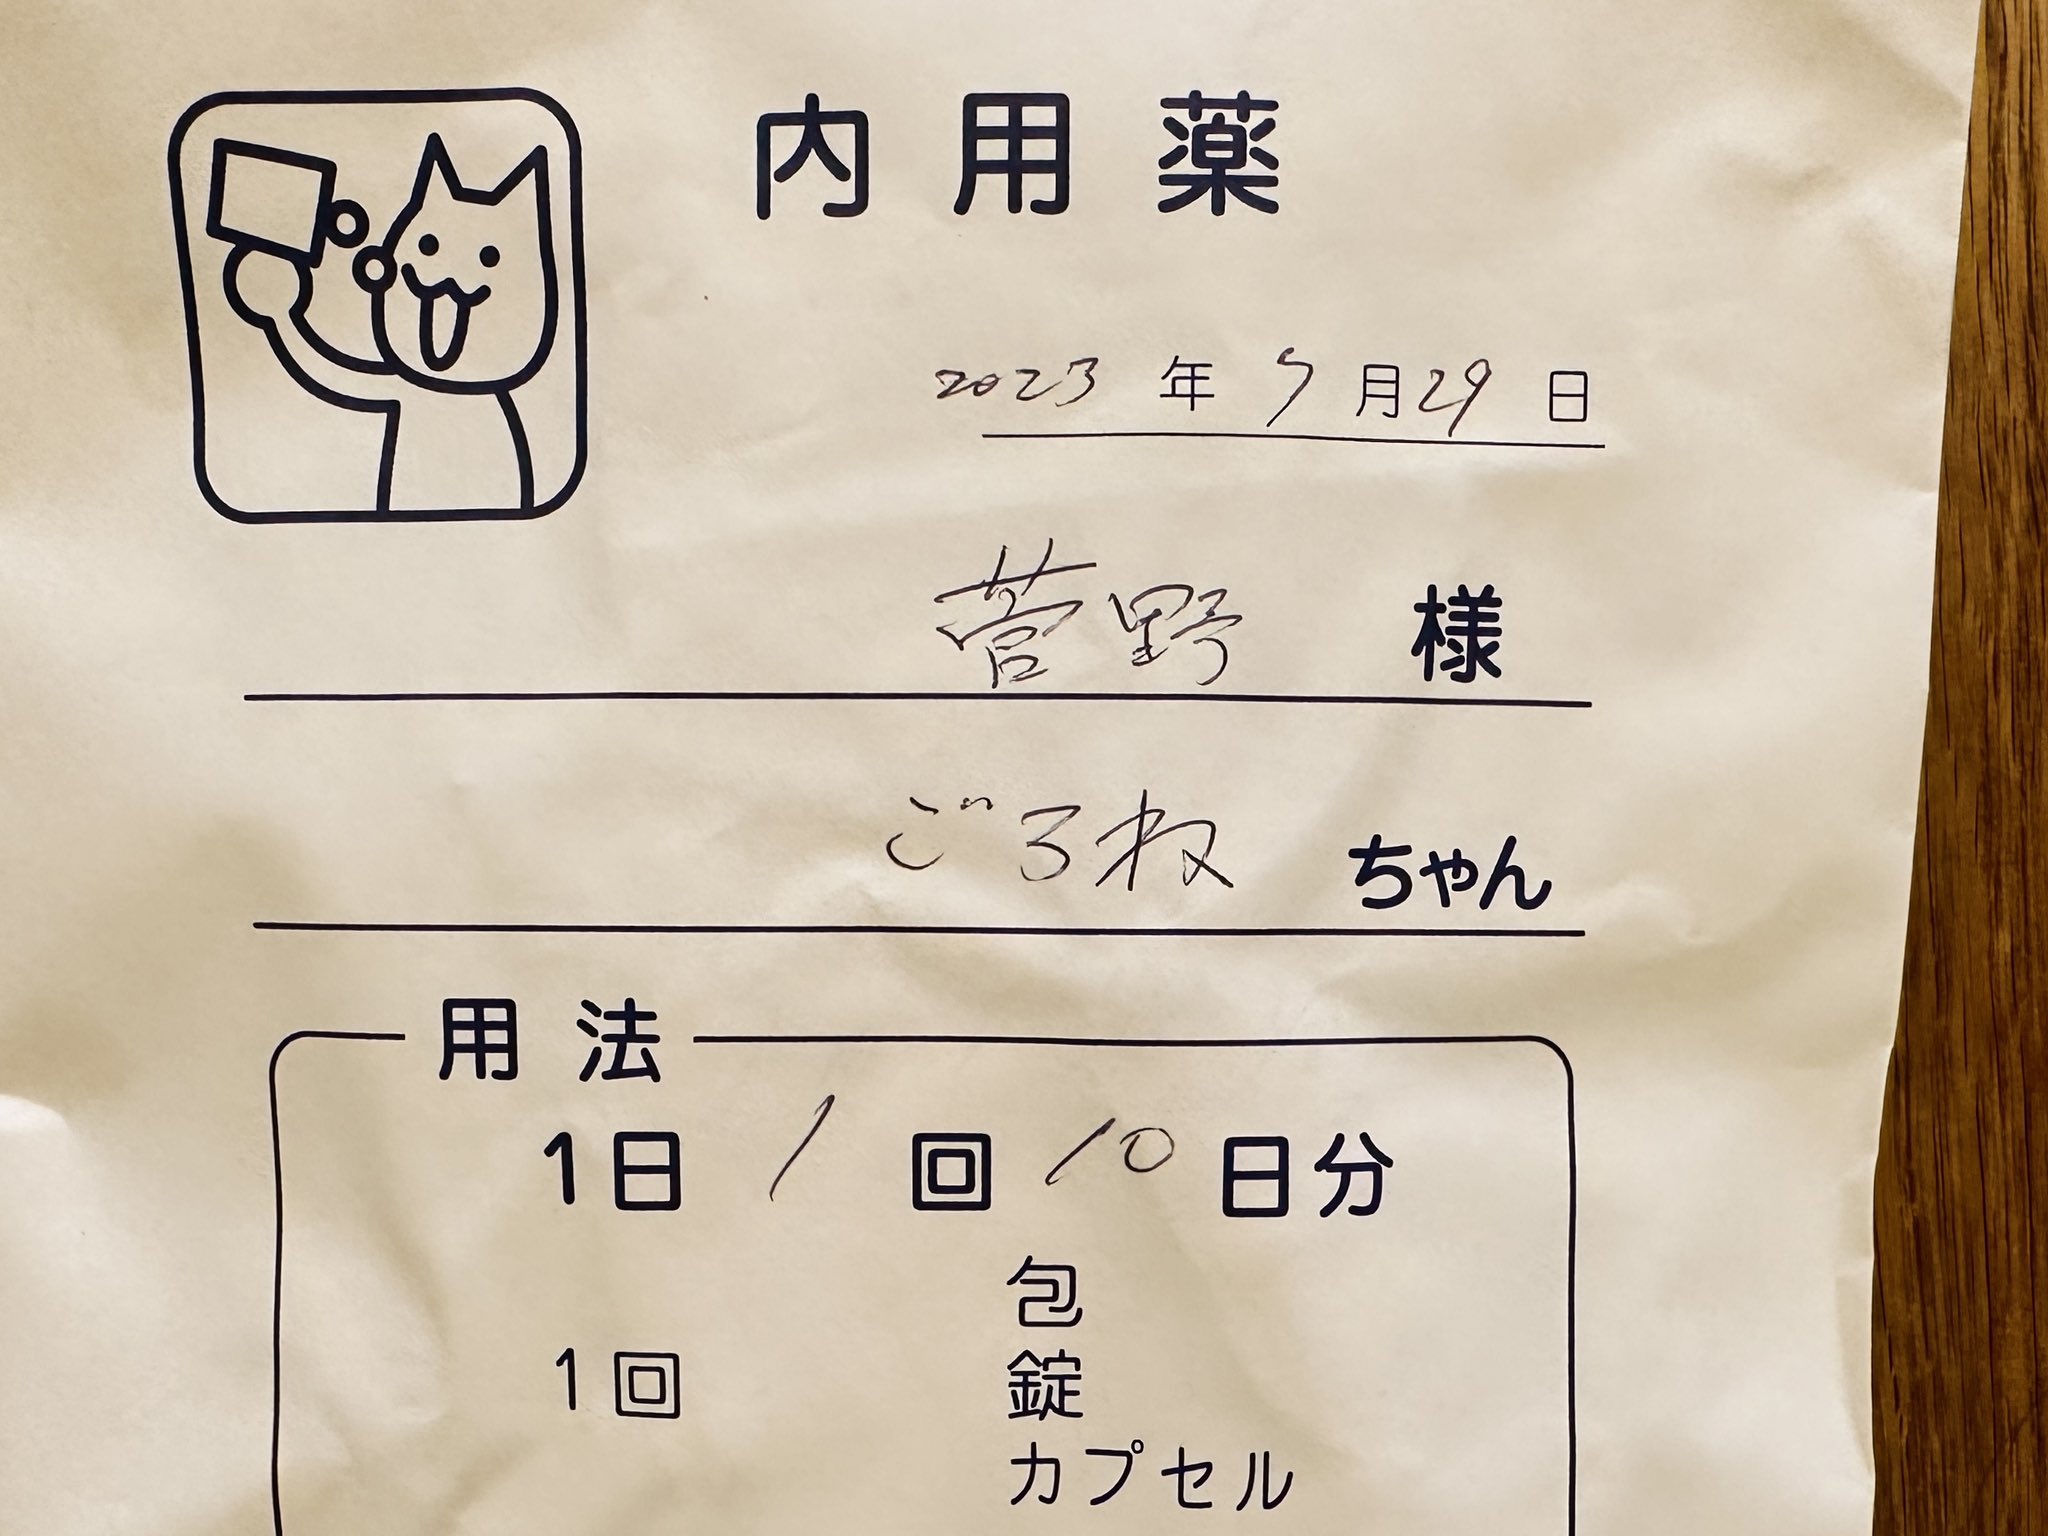 内用薬
2023年7月29日
菅野 様
ごろね ちゃん
用法
1日 1 回 10 日分
包
1回 錠
カプセル